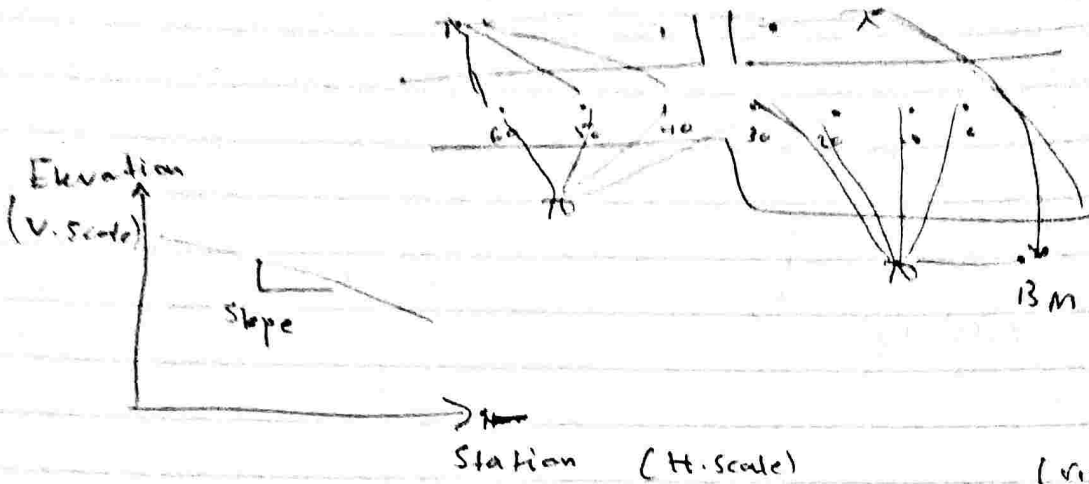 60 50 40 30 20 10 0
Elevation
(V. Scale)
Slope
BM
Station (H. Scale)